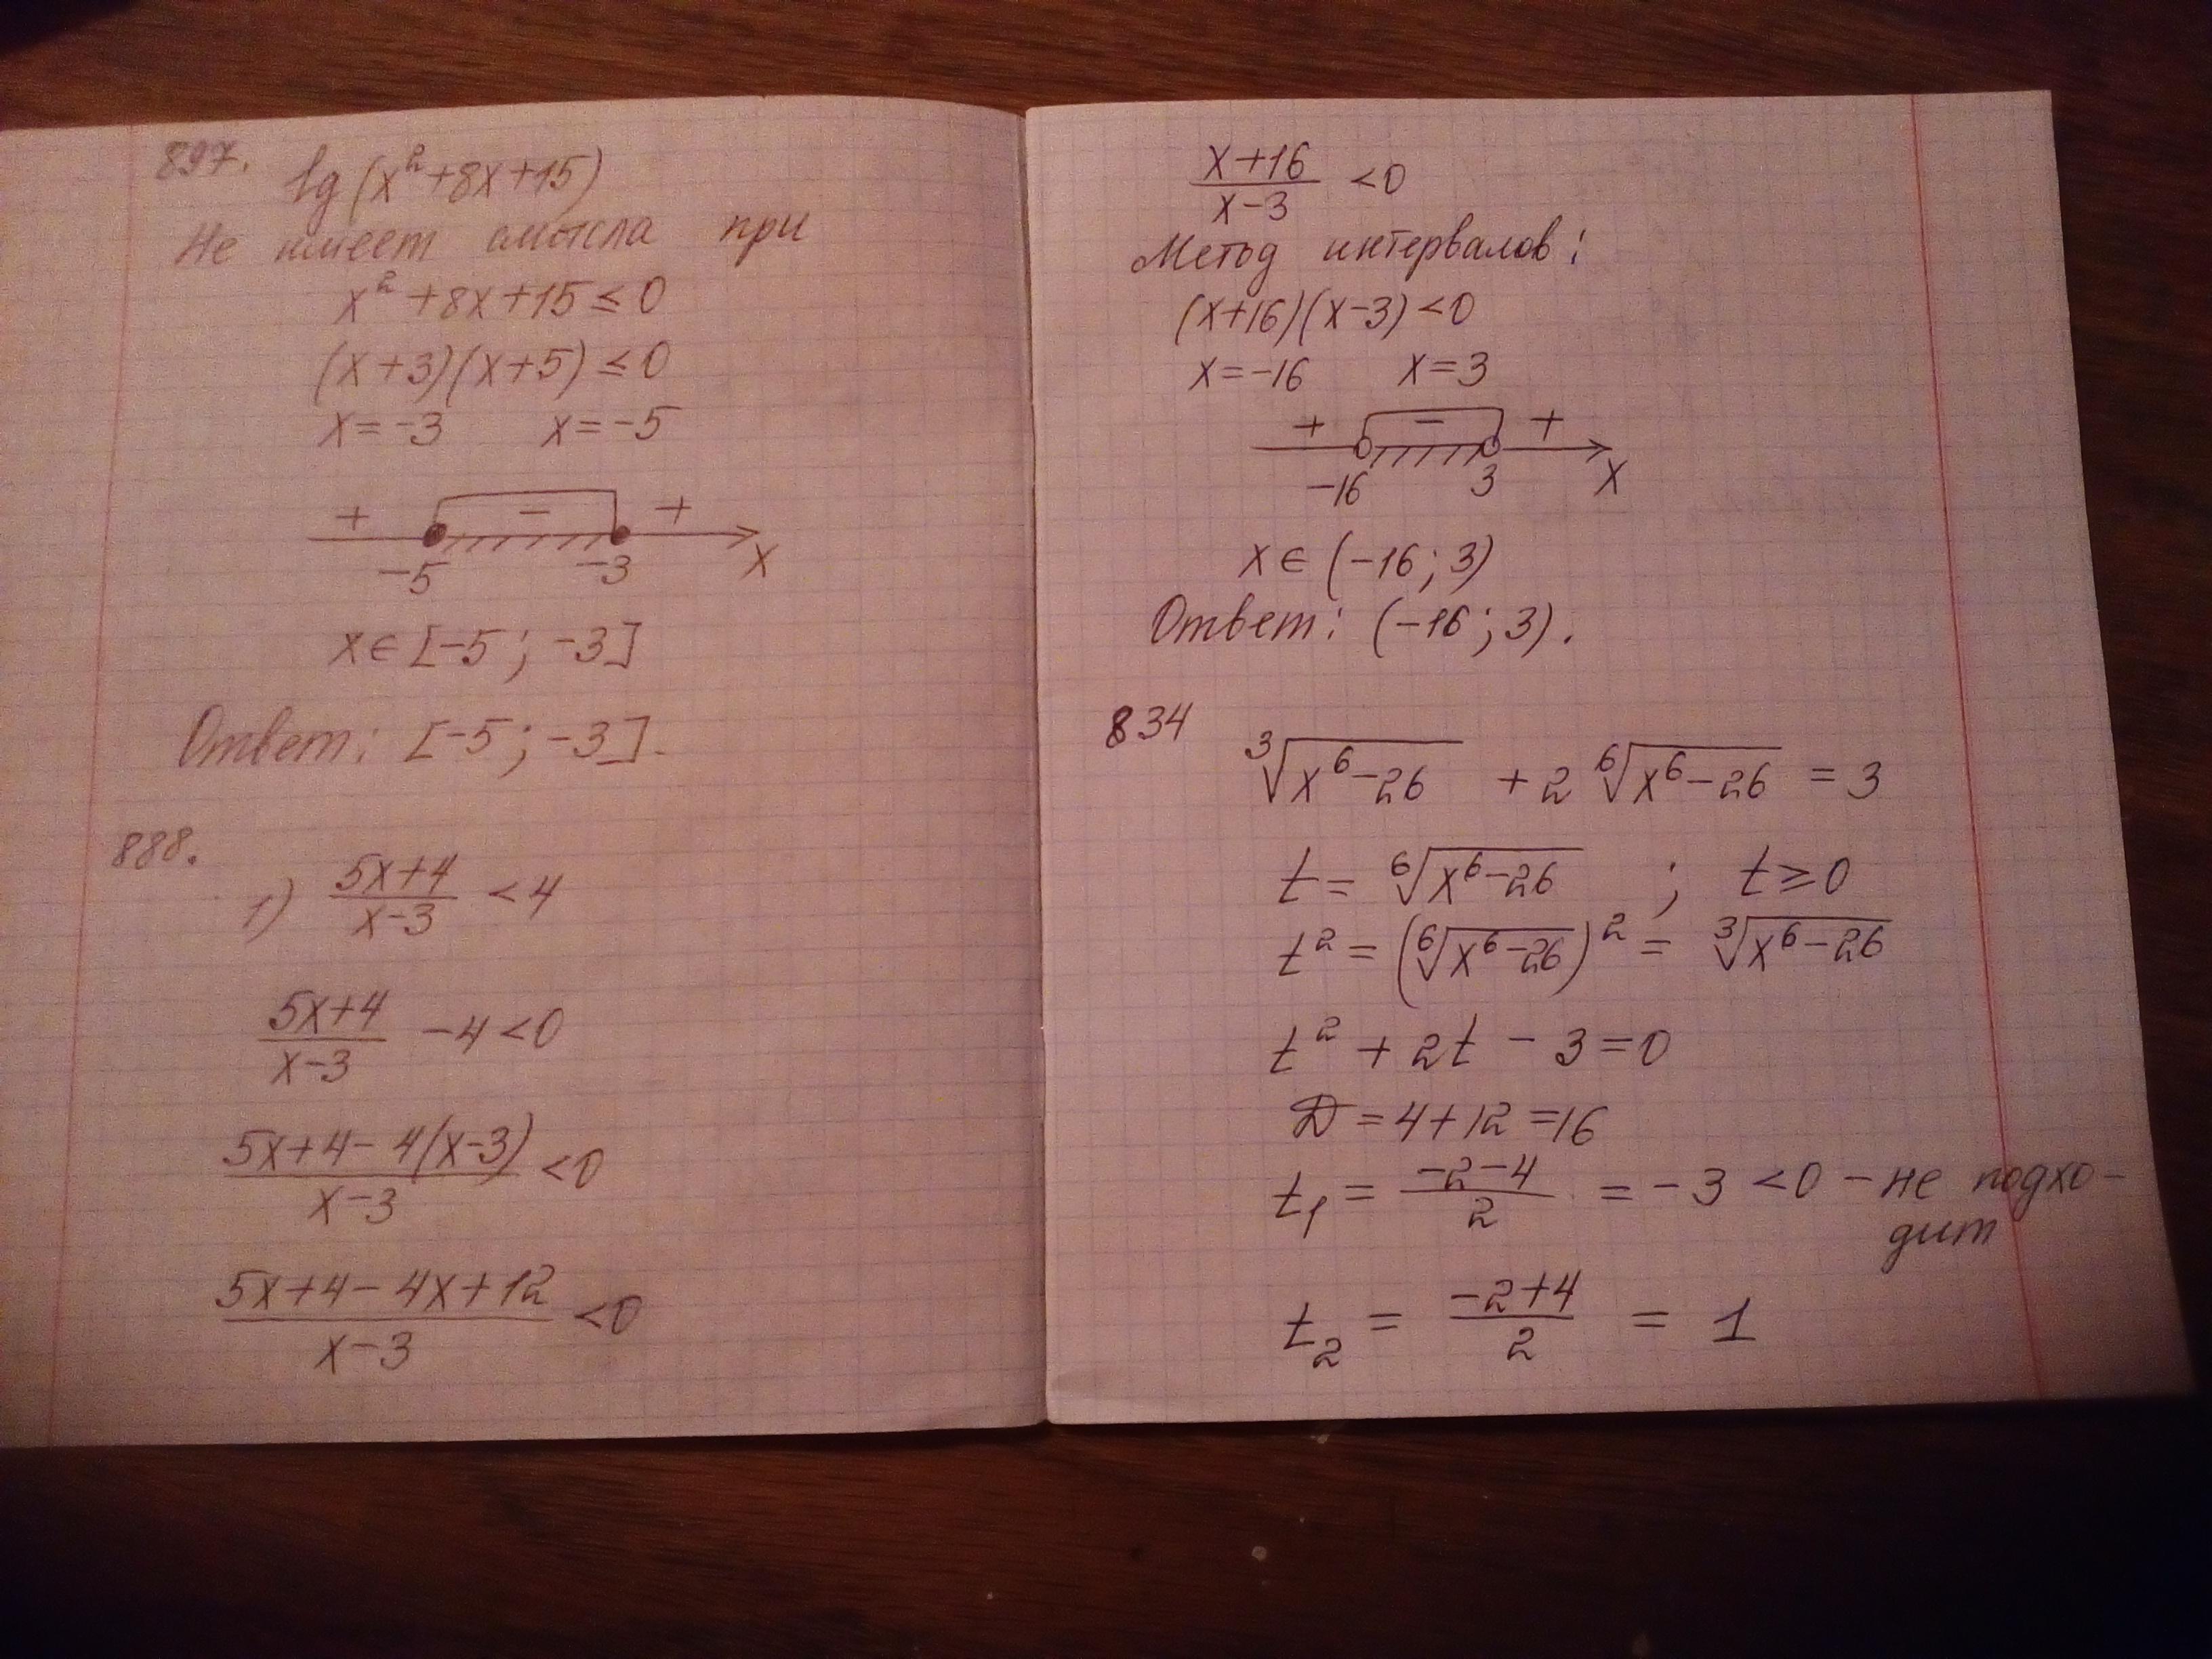 897. lg(x²+8x+15)
Не имеет смысла при
x²+8x+15≤0
(x+3)(x+5)≤0
x=-3 x=-5
+ - +
-5 -3 x
x∈[-5; -3]
Ответ: [-5; -3].
888.
1) (5x+4)/(x-3) <4
(5x+4)/(x-3) -4<0
(5x+4-4(x-3))/(x-3) <0
(5x+4-4x+12)/(x-3) <0
(x+16)/(x-3) <0
Метод интервалов:
(x+16)(x-3)<0
x=-16 x=3
+ - +
-16 3 x
x∈(-16; 3)
Ответ: (-16; 3).
834
³√(x⁶-26) + 2 ⁶√(x⁶-26) = 3
t= ⁶√(x⁶-26) ; t≥0
t² = (⁶√(x⁶-26))² = ³√(x⁶-26)
t² + 2t - 3=0
D=4+12=16
t₁ = (-2-4)/2 = -3 <0 - не подхо-
дит
t₂ = (-2+4)/2 = 1